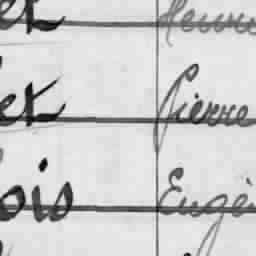 et
et Pierre
ois Eugè